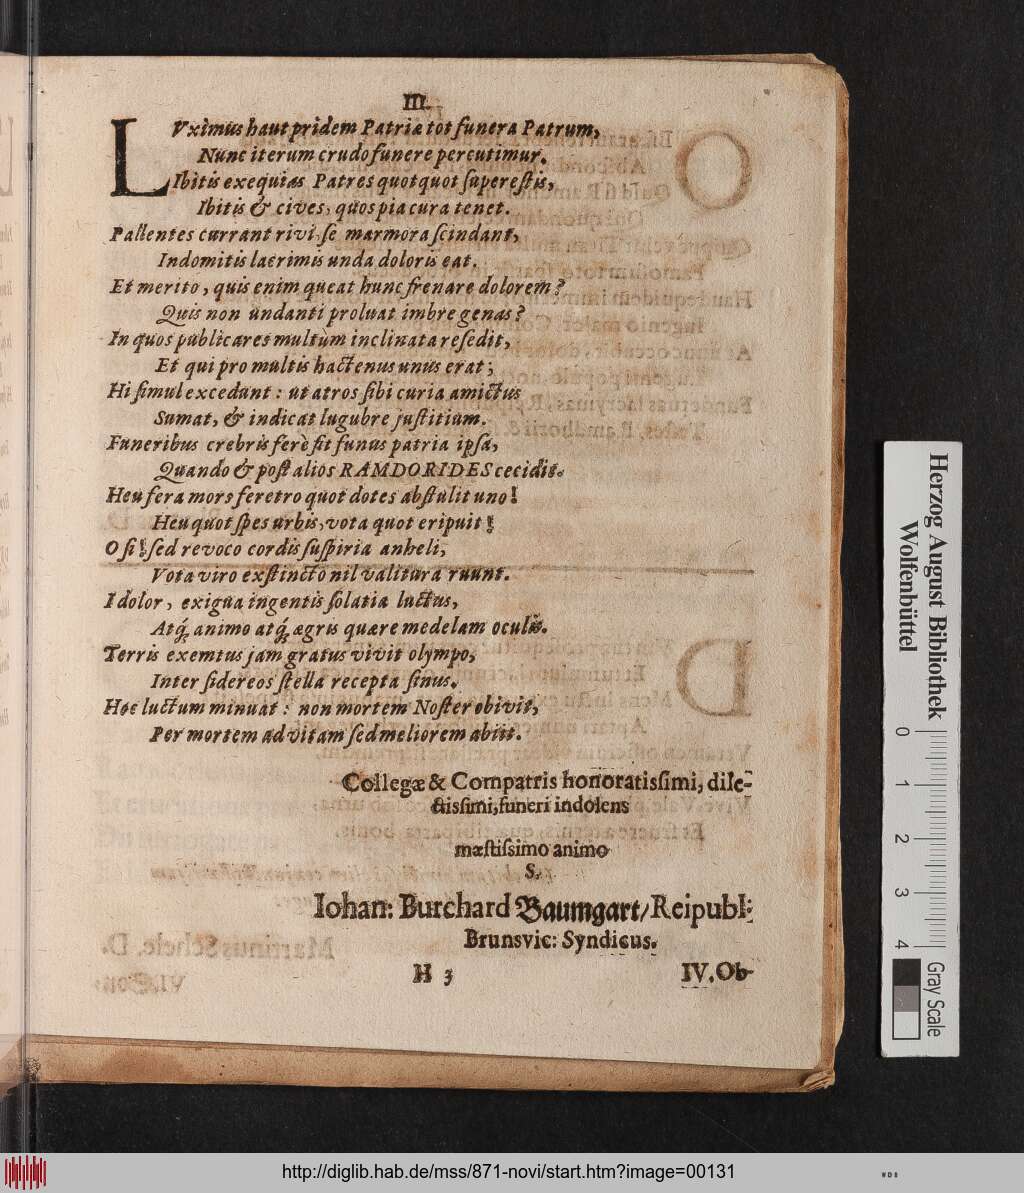 III.
LVximus haut pridem Patriæ tot funera Patrum,
Nunc iterum crudo funere percutimur.
Ibitis exequias Patres quotquot superestis,
Ibitis & cives, quos pia cura tenet.
Pallentes currant rivi, se marmora scindant,
Indomitis lacrimis unda doloris eat.
Et merito, quis enim queat hunc frenare dolorem?
Quis non undanti proluat imbre genas?
In quos publica res multùm inclinata resedit,
Et qui pro multis hactenus unus erat;
Hi simul excedunt: ut atros sibi curia amictus
Sumat, & indicat lugubre justitium.
Funeribus crebris ferè fit funus patria ipsa,
Quando & post alios RAMDORIDES cecidit.
Heu fera mors feretro quot dotes abstulit uno!
Heu quot spes urbis, vota quot eripuit!
O si! sed revoco cordis suspiria anheli,
Vota viro exstincto nil valitura ruunt.
I dolor, exigua ingentis solatia luctus,
Atq́; animo atq́; ægris quære medelam oculis.
Terris exemtus jam gratus vivit olympo,
Inter sidereos stella recepta sinus.
Hoc luctum minuat: non mortem Noster obivit,
Per mortem ad vitam sed meliorem abiit.
Collegæ & Compatris honoratissimi, dile-
ctissimi, funeri indolens
mæstissimo animo
S.
Iohan: Burchard Baumgart/ Reipubl:
Brunsvic: Syndicus.
H 3 IV. Ob-
Herzog August Bibliothek
Wolfenbüttel
0 1 2 3 4
Gray Scale
http://diglib.hab.de/mss/871-novi/start.htm?image=00131